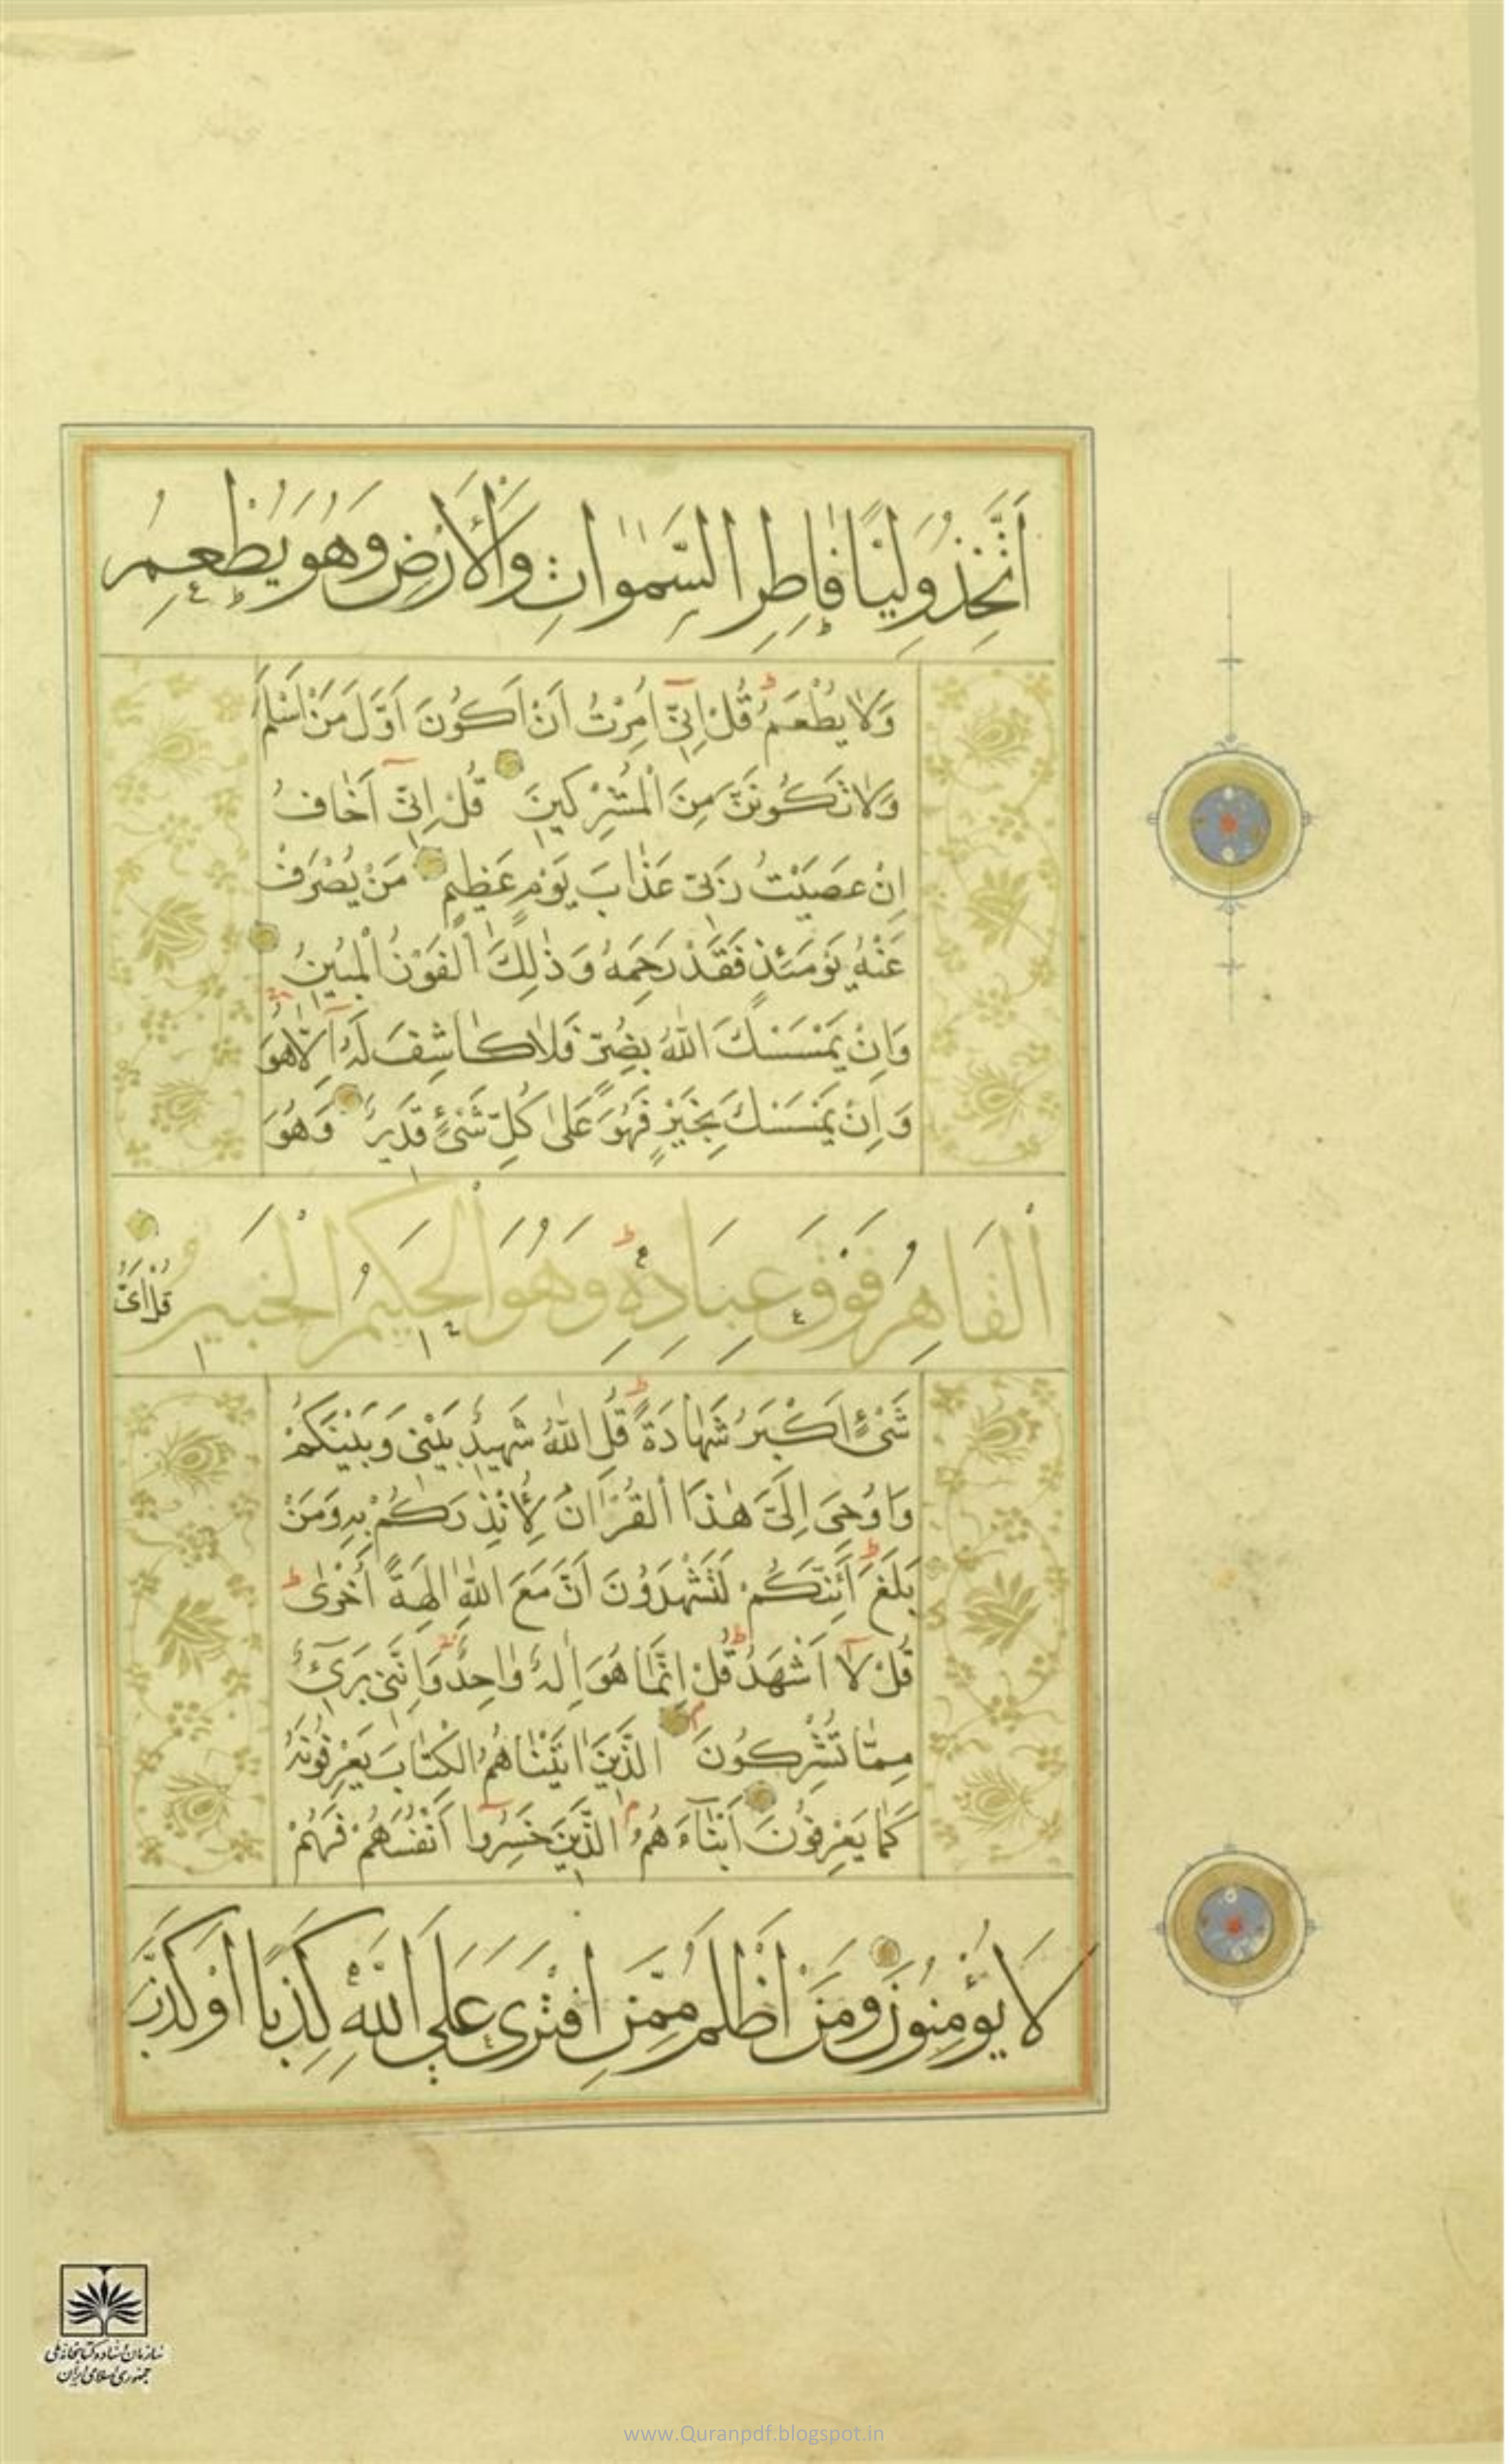 اَتَّخِذُ وَلِيًّا فَاطِرِ السَّمٰوَاتِ وَالْاَرْضِ وَهُوَ يُطْعِمُ
وَلَا يُطْعَمُ قُلْ اِنِّىٓ اُمِرْتُ اَنْ اَكُونَ اَوَّلَ مَنْ اَسْلَمَ
وَلَا تَكُونَنَّ مِنَ الْمُشْرِكِينَ قُلْ اِنِّىٓ اَخَافُ
اِنْ عَصَيْتُ رَبِّى عَذَابَ يَوْمٍ عَظِيمٍ مَنْ يُصْرَفْ
عَنْهُ يَوْمَئِذٍ فَقَدْ رَحِمَهُ وَذٰلِكَ الْفَوْزُ الْمُبِينُ
وَاِنْ يَمْسَسْكَ اللّٰهُ بِضُرٍّ فَلَا كَاشِفَ لَهُٓ اِلَّا هُوَ
وَاِنْ يَمْسَسْكَ بِخَيْرٍ فَهُوَ عَلٰى كُلِّ شَىْءٍ قَدِيرٌ وَهُوَ
الْقَاهِرُ فَوْقَ عِبَادِهِ وَهُوَ الْحَكِيمُ الْخَبِيرُ قُلْ اَىُّ
شَىْءٍ اَكْبَرُ شَهَادَةً قُلِ اللّٰهُ شَهِيدٌ بَيْنِى وَبَيْنَكُمْ
وَاُوحِىَ اِلَىَّ هٰذَا الْقُرْاٰنُ لِاُنْذِرَكُمْ بِهِ وَمَنْ
بَلَغَ اَئِنَّكُمْ لَتَشْهَدُونَ اَنَّ مَعَ اللّٰهِ اٰلِهَةً اُخْرٰى
قُلْ لَآ اَشْهَدُ قُلْ اِنَّمَا هُوَ اِلٰهٌ وَاحِدٌ وَاِنَّنِى بَرِىٓءٌ
مِمَّا تُشْرِكُونَ الَّذِينَ اٰتَيْنَاهُمُ الْكِتَابَ يَعْرِفُونَهُ
كَمَا يَعْرِفُونَ اَبْنَآءَهُمْ الَّذِينَ خَسِرُوٓا اَنْفُسَهُمْ فَهُمْ
لَا يُؤْمِنُونَ وَمَنْ اَظْلَمُ مِمَّنِ افْتَرٰى عَلَى اللّٰهِ كَذِبًا اَوْ كَذَّبَ
سازمان اسناد و کتابخانه ملی
جمهوری اسلامی ایران
www.Quranpdf.blogspot.in